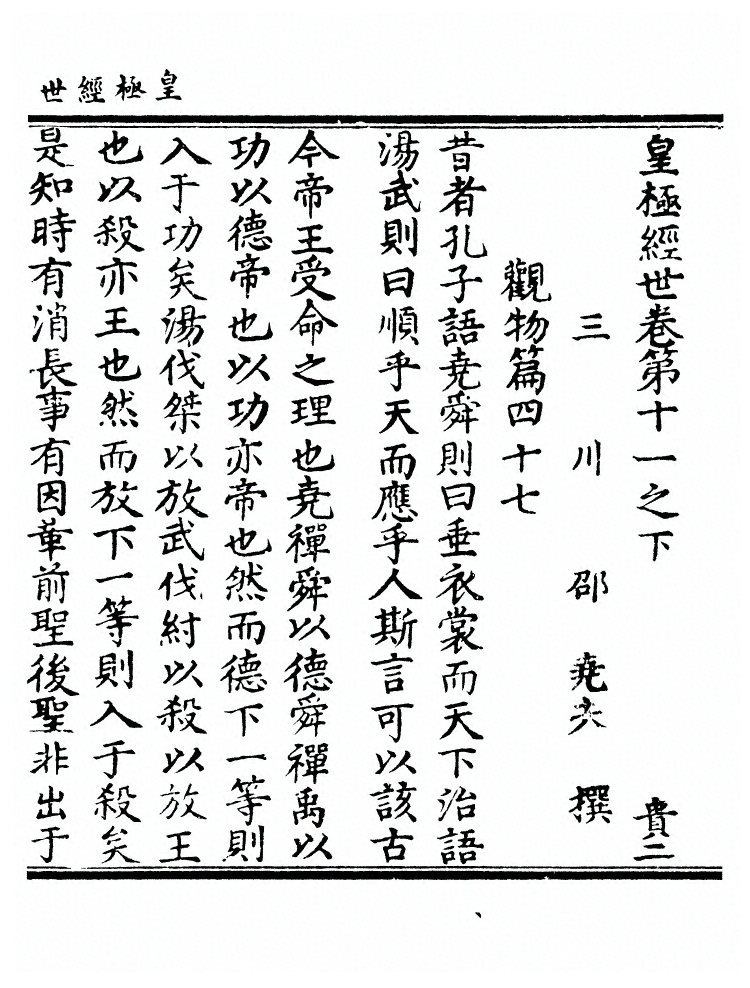 皇極經世
皇極經世卷第十一之下 貴二
三川 邵堯夫 撰
觀物篇四十七
昔者孔子語堯舜則曰垂衣裳而天下治語
湯武則曰順乎天而應乎人斯言可以該古
今帝王受命之理也堯禪舜以德舜禪禹以
功以德帝也以功亦帝也然而德下一等則
入于功矣湯伐桀以放武伐紂以殺以放王
也以殺亦王也然而放下一等則入于殺矣
是知時有消長事有因革前聖後聖非出于